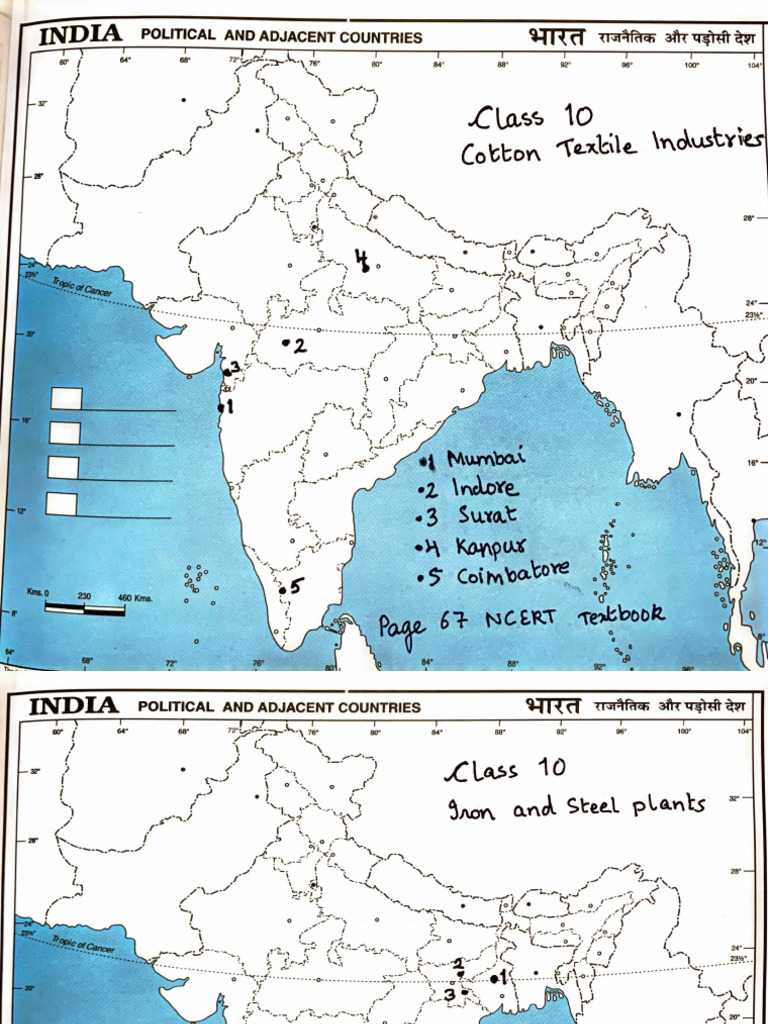 INDIA POLITICAL AND ADJACENT COUNTRIES भारत राजनैतिक और पड़ोसी देश
60° 64° 72° 76° 80° 84° 88° 92° 96° 100° 104°
32°
Class 10
Cotton Textile Industries
28°
28°
4
24°
23½°
Tropic of Cancer
24°
23½°
20°
2
3
20°
1
16°
1 Mumbai
16°
2 Indore
3 Surat
12°
4 Kanpur
12°
5 Coimbatore
5
Kms. 0 230 460 Kms.
Page 67 NCERT Textbook
8°
8°
64° 68° 72° 76° 80° 84° 88° 92° 96°
INDIA POLITICAL AND ADJACENT COUNTRIES भारत राजनैतिक और पड़ोसी देश
60° 64° 72° 76° 80° 84° 88° 92° 96° 100° 104°
Class 10
32°
Iron and Steel plants
32°
28°
28°
24°
23½°
Tropic of Cancer
24°
23½°
2
1
3
20°
20°